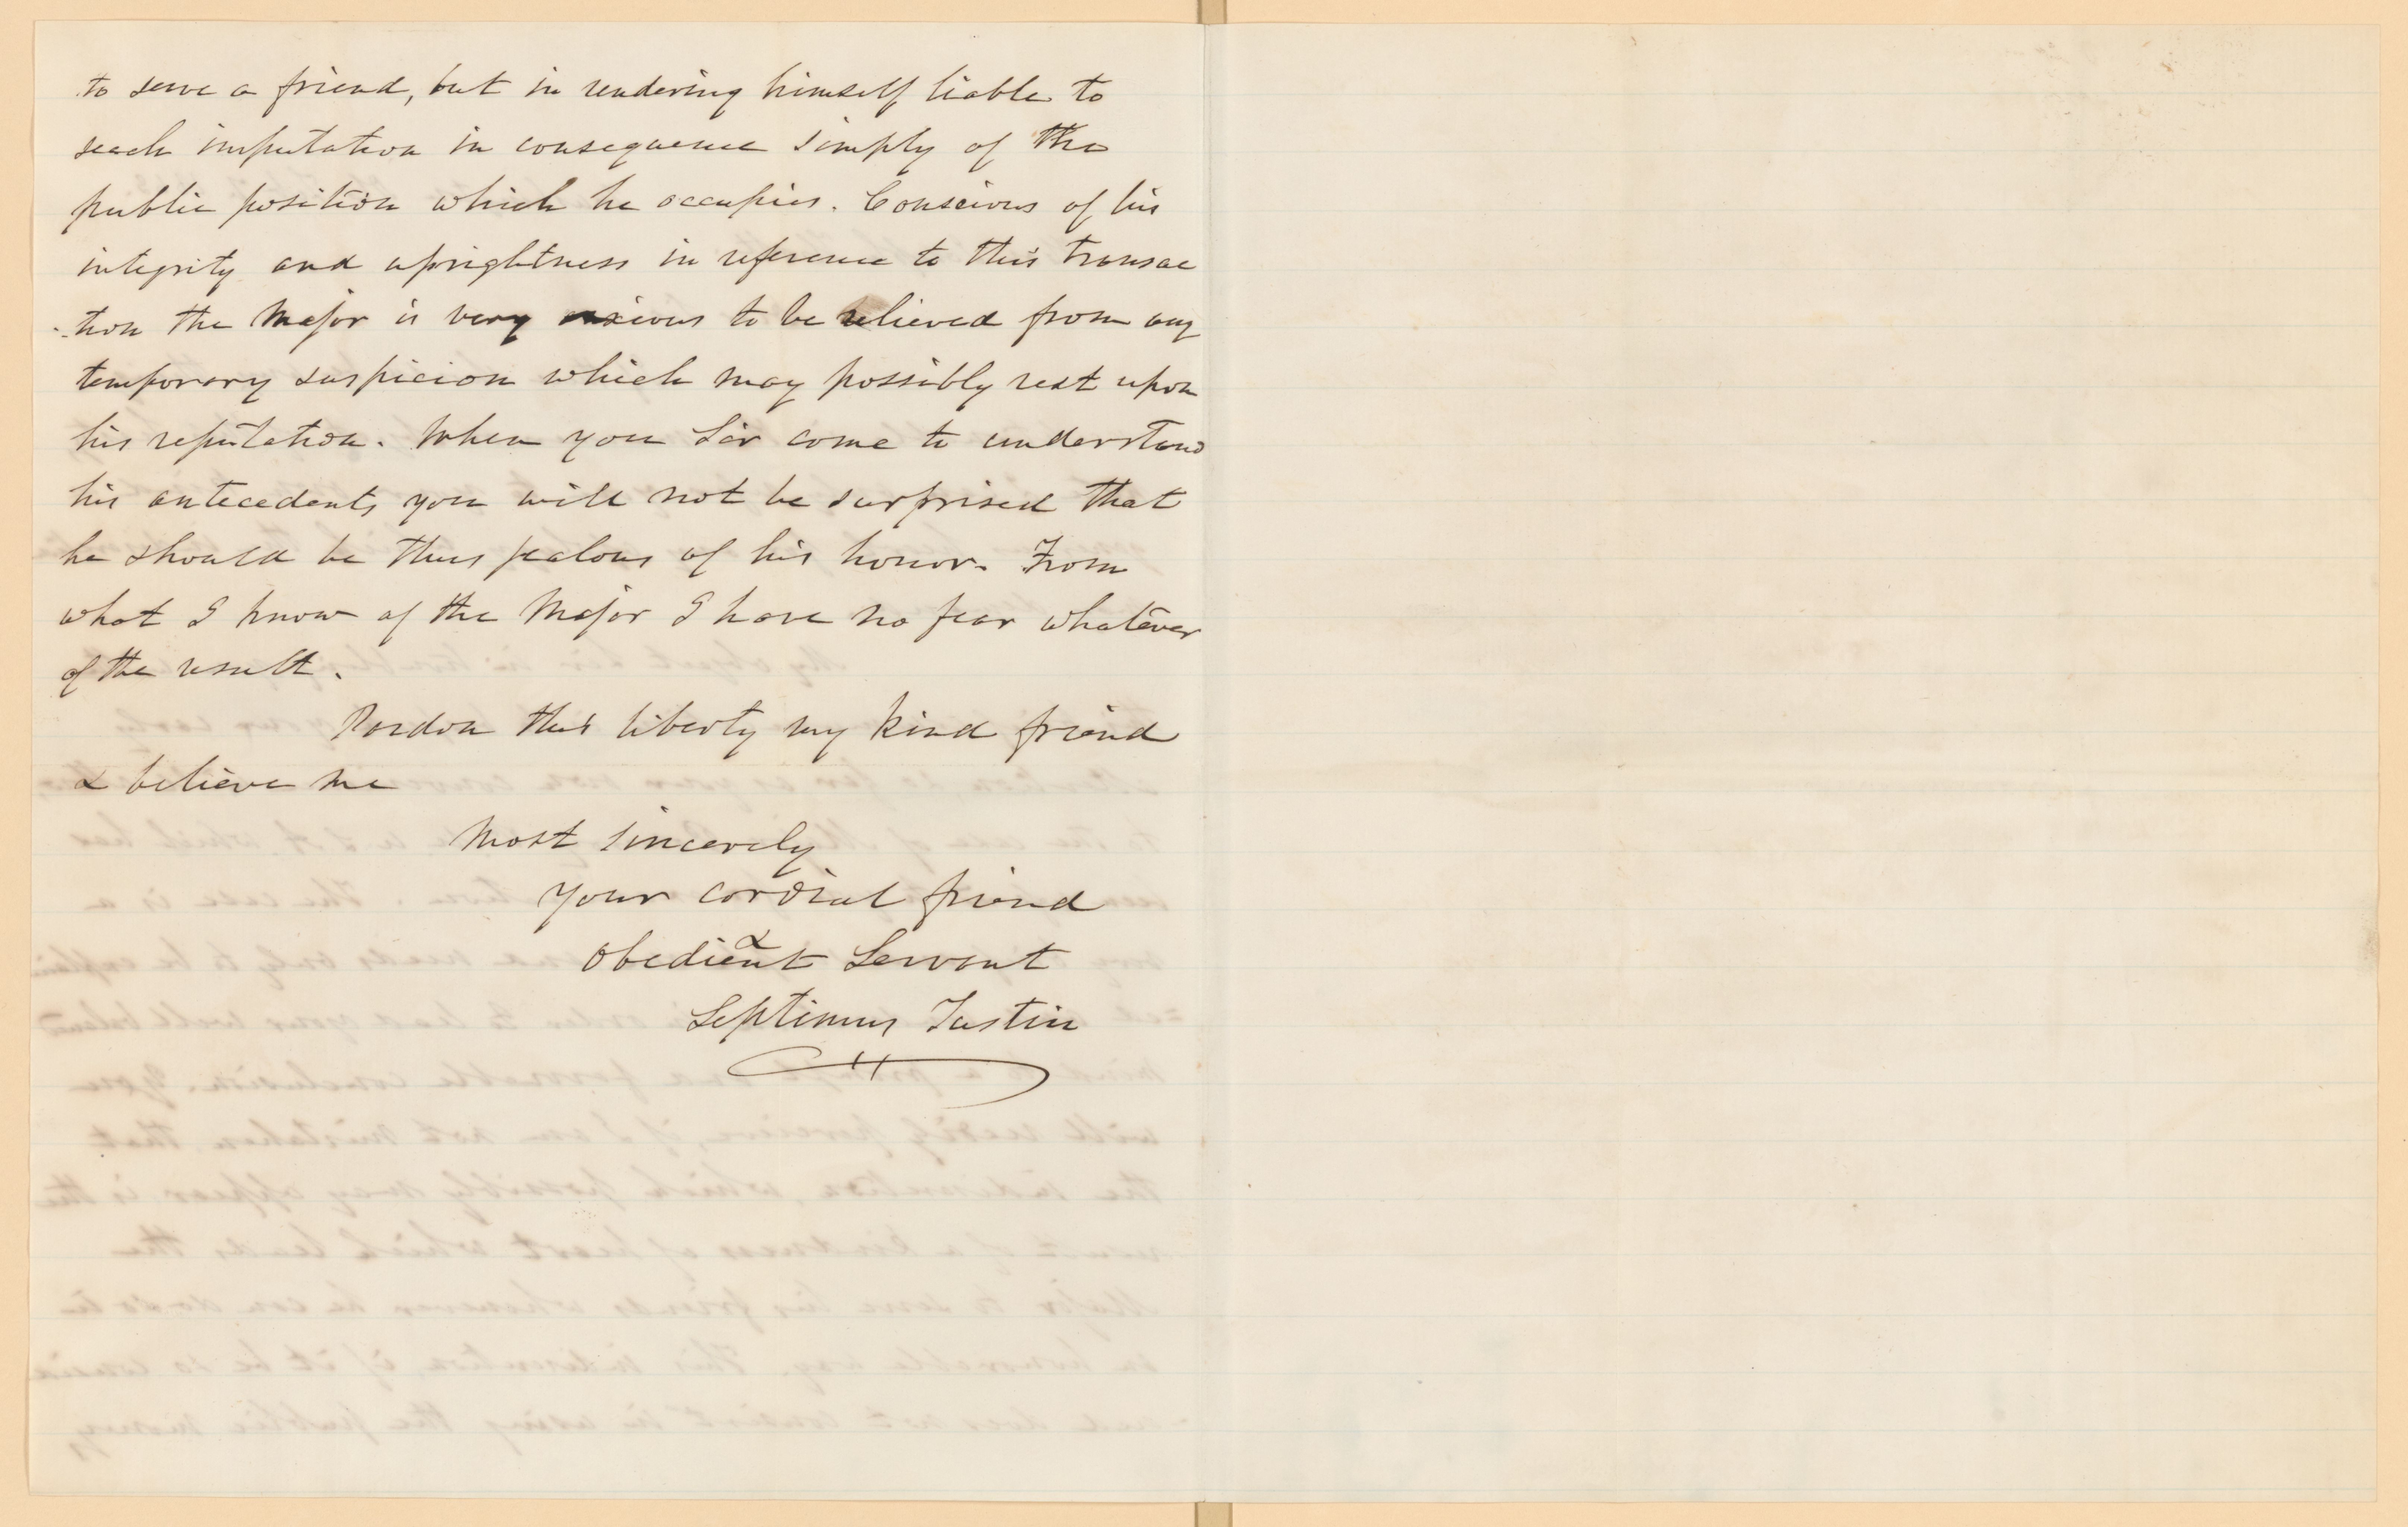 to serve a friend, but in rendering himself liable to
such imputation in consequence simply of the
public position which he occupies. Conscious of his
integrity and uprightness in reference to this transac
-tion the Major is very anxious to be relieved from any
temporary suspicion which may possibly rest upon
his reputation. When you Sir come to understand
his antecedents you will not be surprised that
he should be thus jealous of his honor. From
what I know of the Major I have no fear whatever
of the result.
Pardon this liberty my kind friend
& believe me
Most sincerely
Your cordial friend
&
Obedient Servant
Septimus Tustin